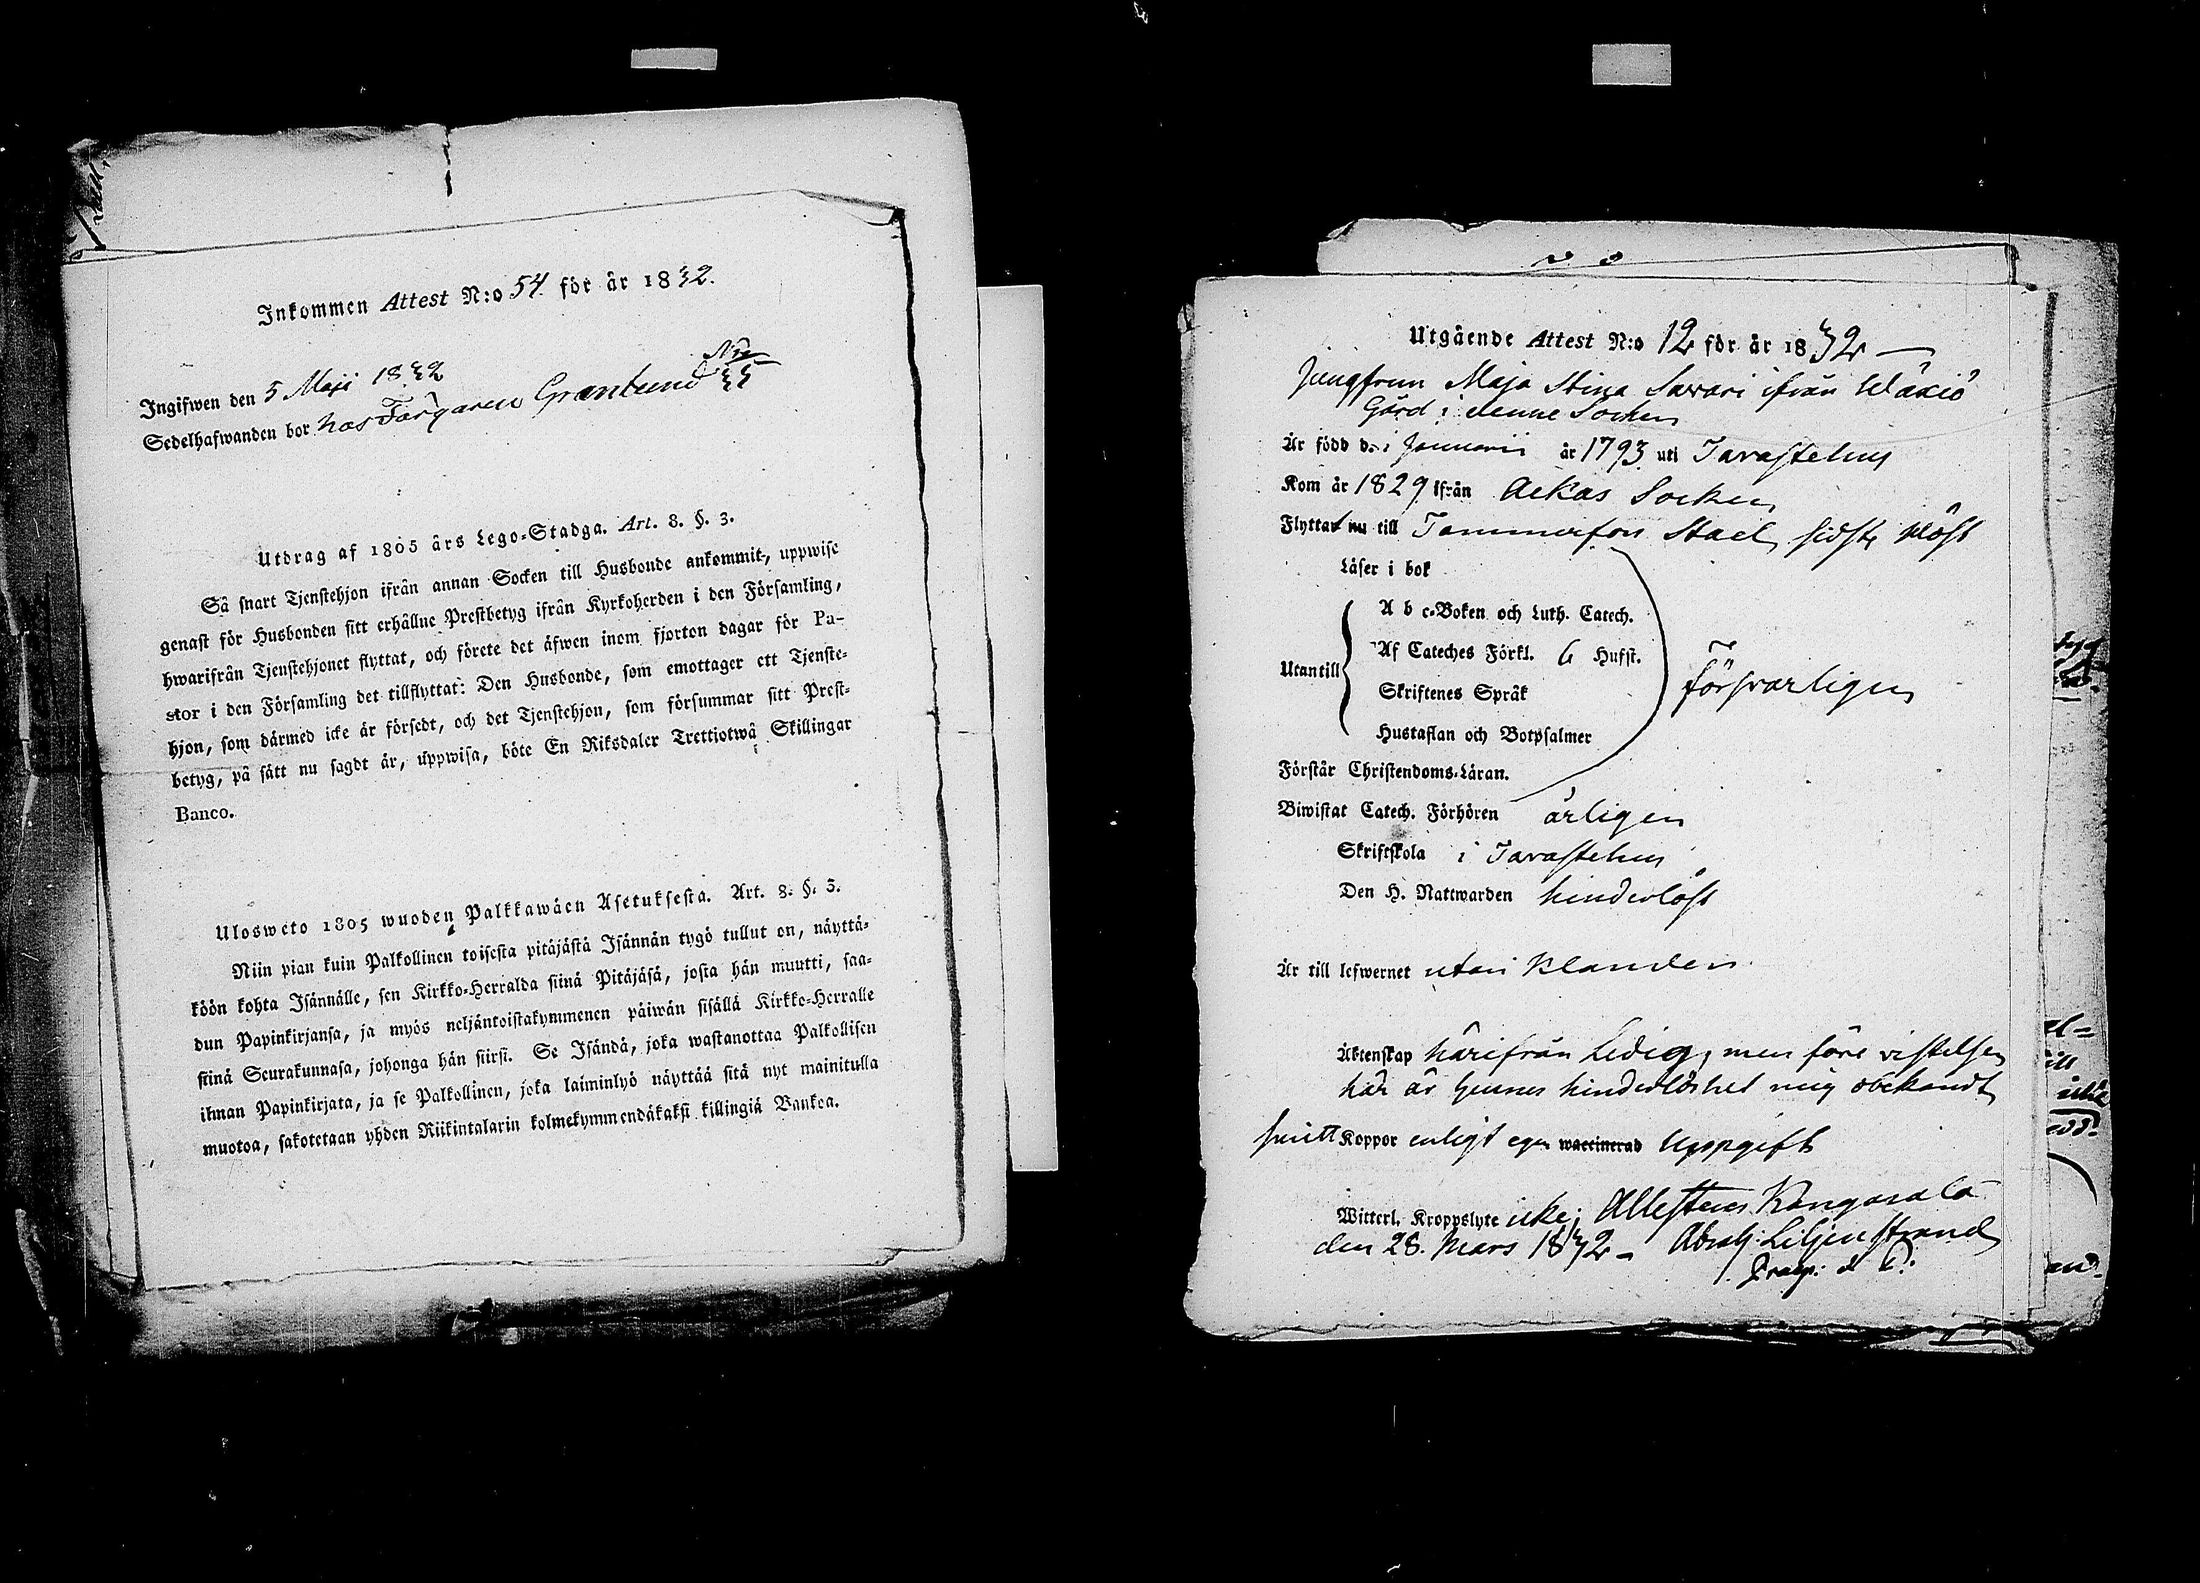 Inkommen Attest N:o 54 för år 1832.
Ingifwen den 5 Maji 1832
Sedelhafwanden bor hos Färgaren Granlund
Utdrag af 1805 års Lego-Stadga. Art. 8. §. 3.
Så snart Tjenstehjon ifrån annan Socken till Husbonde ankommit, uppwise
genast för Husbonden sitt erhållne Prestbetyg ifrån Kyrkoherden i den Församling,
hwarifrån Tjenstehjonet flyttat, och förete det äfwen inom fjorton dagar för Pa-
stor i den Församling det tillflyttat: Den Husbonde, som emottager ett Tjenste-
hjon, som därmed icke är försedt, och det Tjenstehjon, som försummar sitt Prest-
betyg, på sätt nu sagdt är, uppwisa, böte En Riksdaler Trettiotwå Skillingar
Banco.
Ulosweto 1805 wuoden Palkkawäen Asetuksesta. Art. 8. §. 3.
Niin pian kuin Palkollinen toisesta pitäjästä Isännän tygö tullut on, näyttä-
köön kohta Isännälle, sen Kirkko-Herralda siinä Pitäjäsä, josta hän muutti, saa-
dun Papinkirjansa, ja myös neljäntoistakymmenen päiwän sisällä Kirkko-Herralle
siinä Seurakunnasa, johonga hän siirsi. Se Isändä, joka wastanottaa Palkollisen
ilman Papinkirjata, ja se Palkollinen, joka laiminlyö näyttää sitä nyt mainitulla
muotoa, sakotetaan yhden Riikintalarin kolmekymmendäkaksi killingiä Bankoa.
Utgående Attest N:o 12 för år 1832
Jungfrun Maja Stina Savori ifrån Wäxiö
Gård i denne Socken
Är född d. i Januarii år 1793 uti Tavastehus
Kom år 1829 ifrån Ackas Socken
Flyttar nu till Tammerfors Stad, sidste
Läser i bok
A b c-Boken och Luth. Catech.
Af Cateches Förkl. 6 Hufst.
Utantill
Skriftenes Språk
försvarligen
Hustaflan och Botpsalmer
Förstår Christendoms-Läran.
Biwistat Catech. Förhören årligen
Skriftskola i Tavastehus
Den H. Nattwarden hinderlöst
Är till lefwernet utan klander.
Äktenskap härifrån Ledig, men före vistelsen
här är hennes hinderlöshet mig obekandt
haft Koppor enligt egen waccinerad Uppgift
Witterl. Kroppslyte icke; Attesteras Kangasala
den 28. Mars 1832 Abrah: Liljenstrand